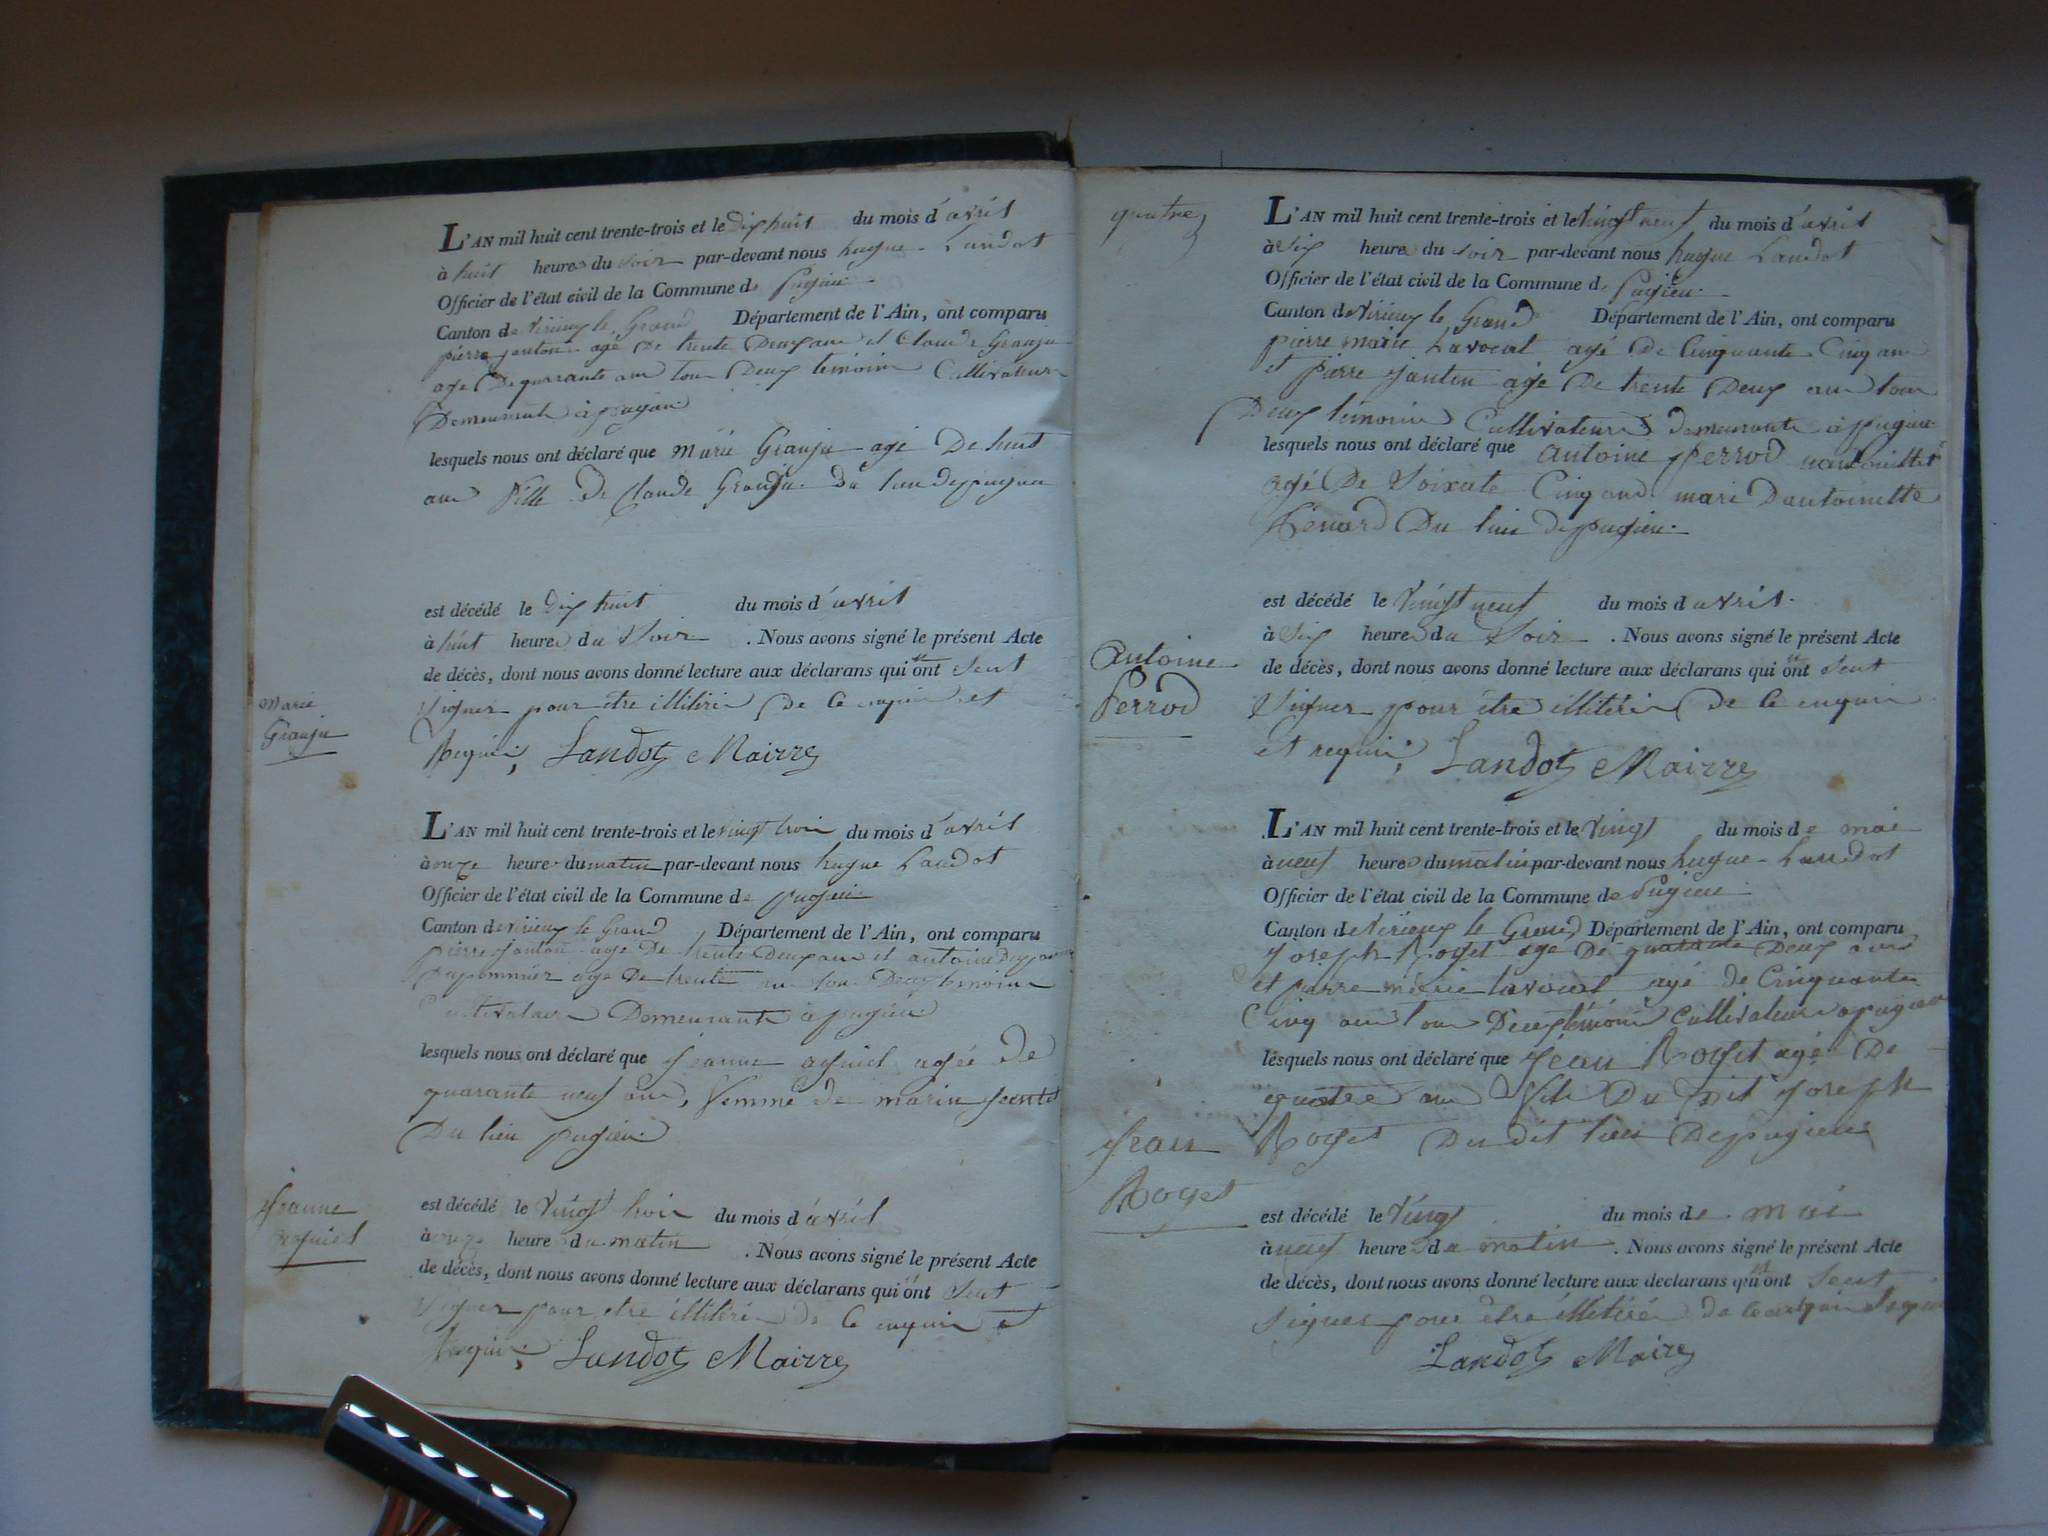 L'AN mil huit cent trente-trois et le dix huit du mois d'avril
à huit heures du soir par-devant nous hugue Landot
Officier de l'état civil de la Commune de pugieu
Canton de Virieux le Grand Département de l'Ain, ont comparu
pierre jantin agé De trente Deux ans et Claude Granju
agé De quarante ans tous Deux témoins Cultivateurs
Demeurants à pugieu
lesquels nous ont déclaré que Marie Granju agé De huit
ans fille De Claude Granju du lieu de pugieu
est décédé le dix huit du mois d'avril
à huit heures du Soir . Nous avons signé le présent Acte
de décès, dont nous avons donné lecture aux déclarans qui ont
signer pour être illitéré De ce enquis et
Requis, Landot Mairre
Marie
Granju
L'AN mil huit cent trente-trois et le vingt trois du mois d'avril
à onze heure du matin par-devant nous hugue Landot
Officier de l'état civil de la Commune de pugieu
Canton de Virieux le Grand Département de l'Ain, ont comparu
pierre jantin agé De trente Deux ans et antoine
agé De trente ans tous Deux témoins
Cultivateurs Demeurants à pugieu
lesquels nous ont déclaré que jeanne agée De
quarante neuf ans, femme de marin
Du lieu pugieu
est décédé le Vingt trois du mois d'avril
à onze heure du matin . Nous avons signé le présent Acte
de décès, dont nous avons donné lecture aux déclarans qui ont
signer pour être illitéré de ce enquis et
Requis, Landot Mairre
jeanne
quatre
L'AN mil huit cent trente-trois et le Vingt neuf du mois d'avril
à Six heure du soir par-devant nous hugue Landot
Officier de l'état civil de la Commune de Pugieu
Canton de Virieux le Grand Département de l'Ain, ont comparu
pierre marie Lavocat agé De Cinquante Cinq ans
et pierre jantin agé De trente Deux ans tous
Deux témoins Cultivateurs demeurants à pugieu
lesquels nous ont déclaré que antoine Perrod
agé De Soixate Cinq ans mari D'antoinette
Du lieu De pugieu
est décédé le Vingt neuf du mois d'avril
à Six heures du Soir . Nous avons signé le présent Acte
de décès, dont nous avons donné lecture aux déclarans qui ont
Signer pour être illitéré De ce enquis
et requis, Landot Mairre
Antoine
Perrod
L'AN mil huit cent trente-trois et le Vingt du mois de mai
à neuf heures du matin par-devant nous hugue Landot
Officier de l'état civil de la Commune de Pugieu
Canton de Virieux le Grand Département de l'Ain, ont comparu
joseph Royet agé De quarante Deux ans
et pierre marie Lavocat agé de Cinquante
Cinq ans tous Deux témoins Cultivateurs a pugieu
lesquels nous ont déclaré que jean Royet agé De
quatre ans fils Du Dit joseph
Royet Du dit lieu De pugieu
est décédé le Vingt du mois de mai
à neuf heures du matin . Nous avons signé le présent Acte
de décès, dont nous avons donné lecture aux déclarans qui ont
signer pour être illitéré de ce enquis
Landot Maire
jean
Royet